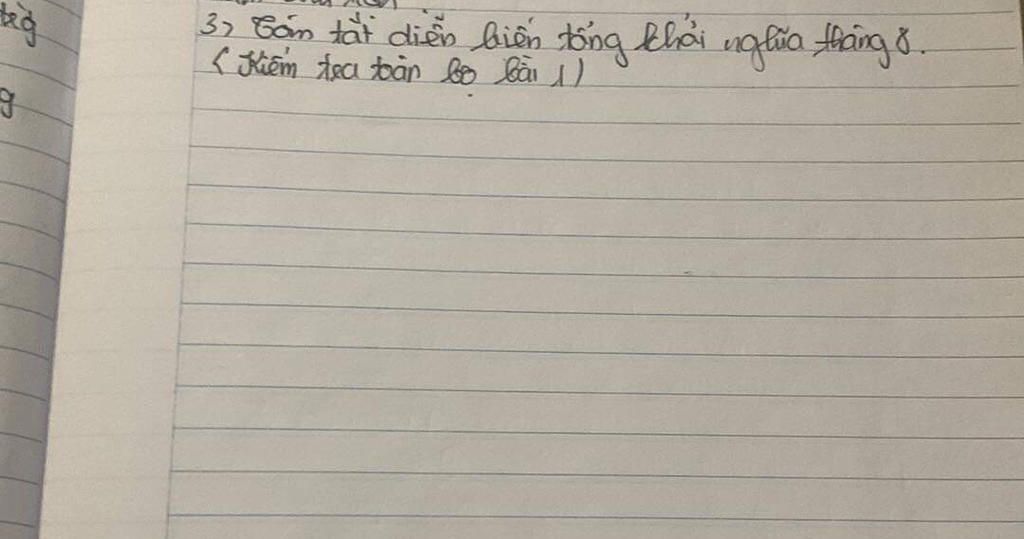 3) Tóm tắt diễn biến tổng khởi nghĩa tháng 8.
(Kiểm tra toàn bộ bài 1)
g